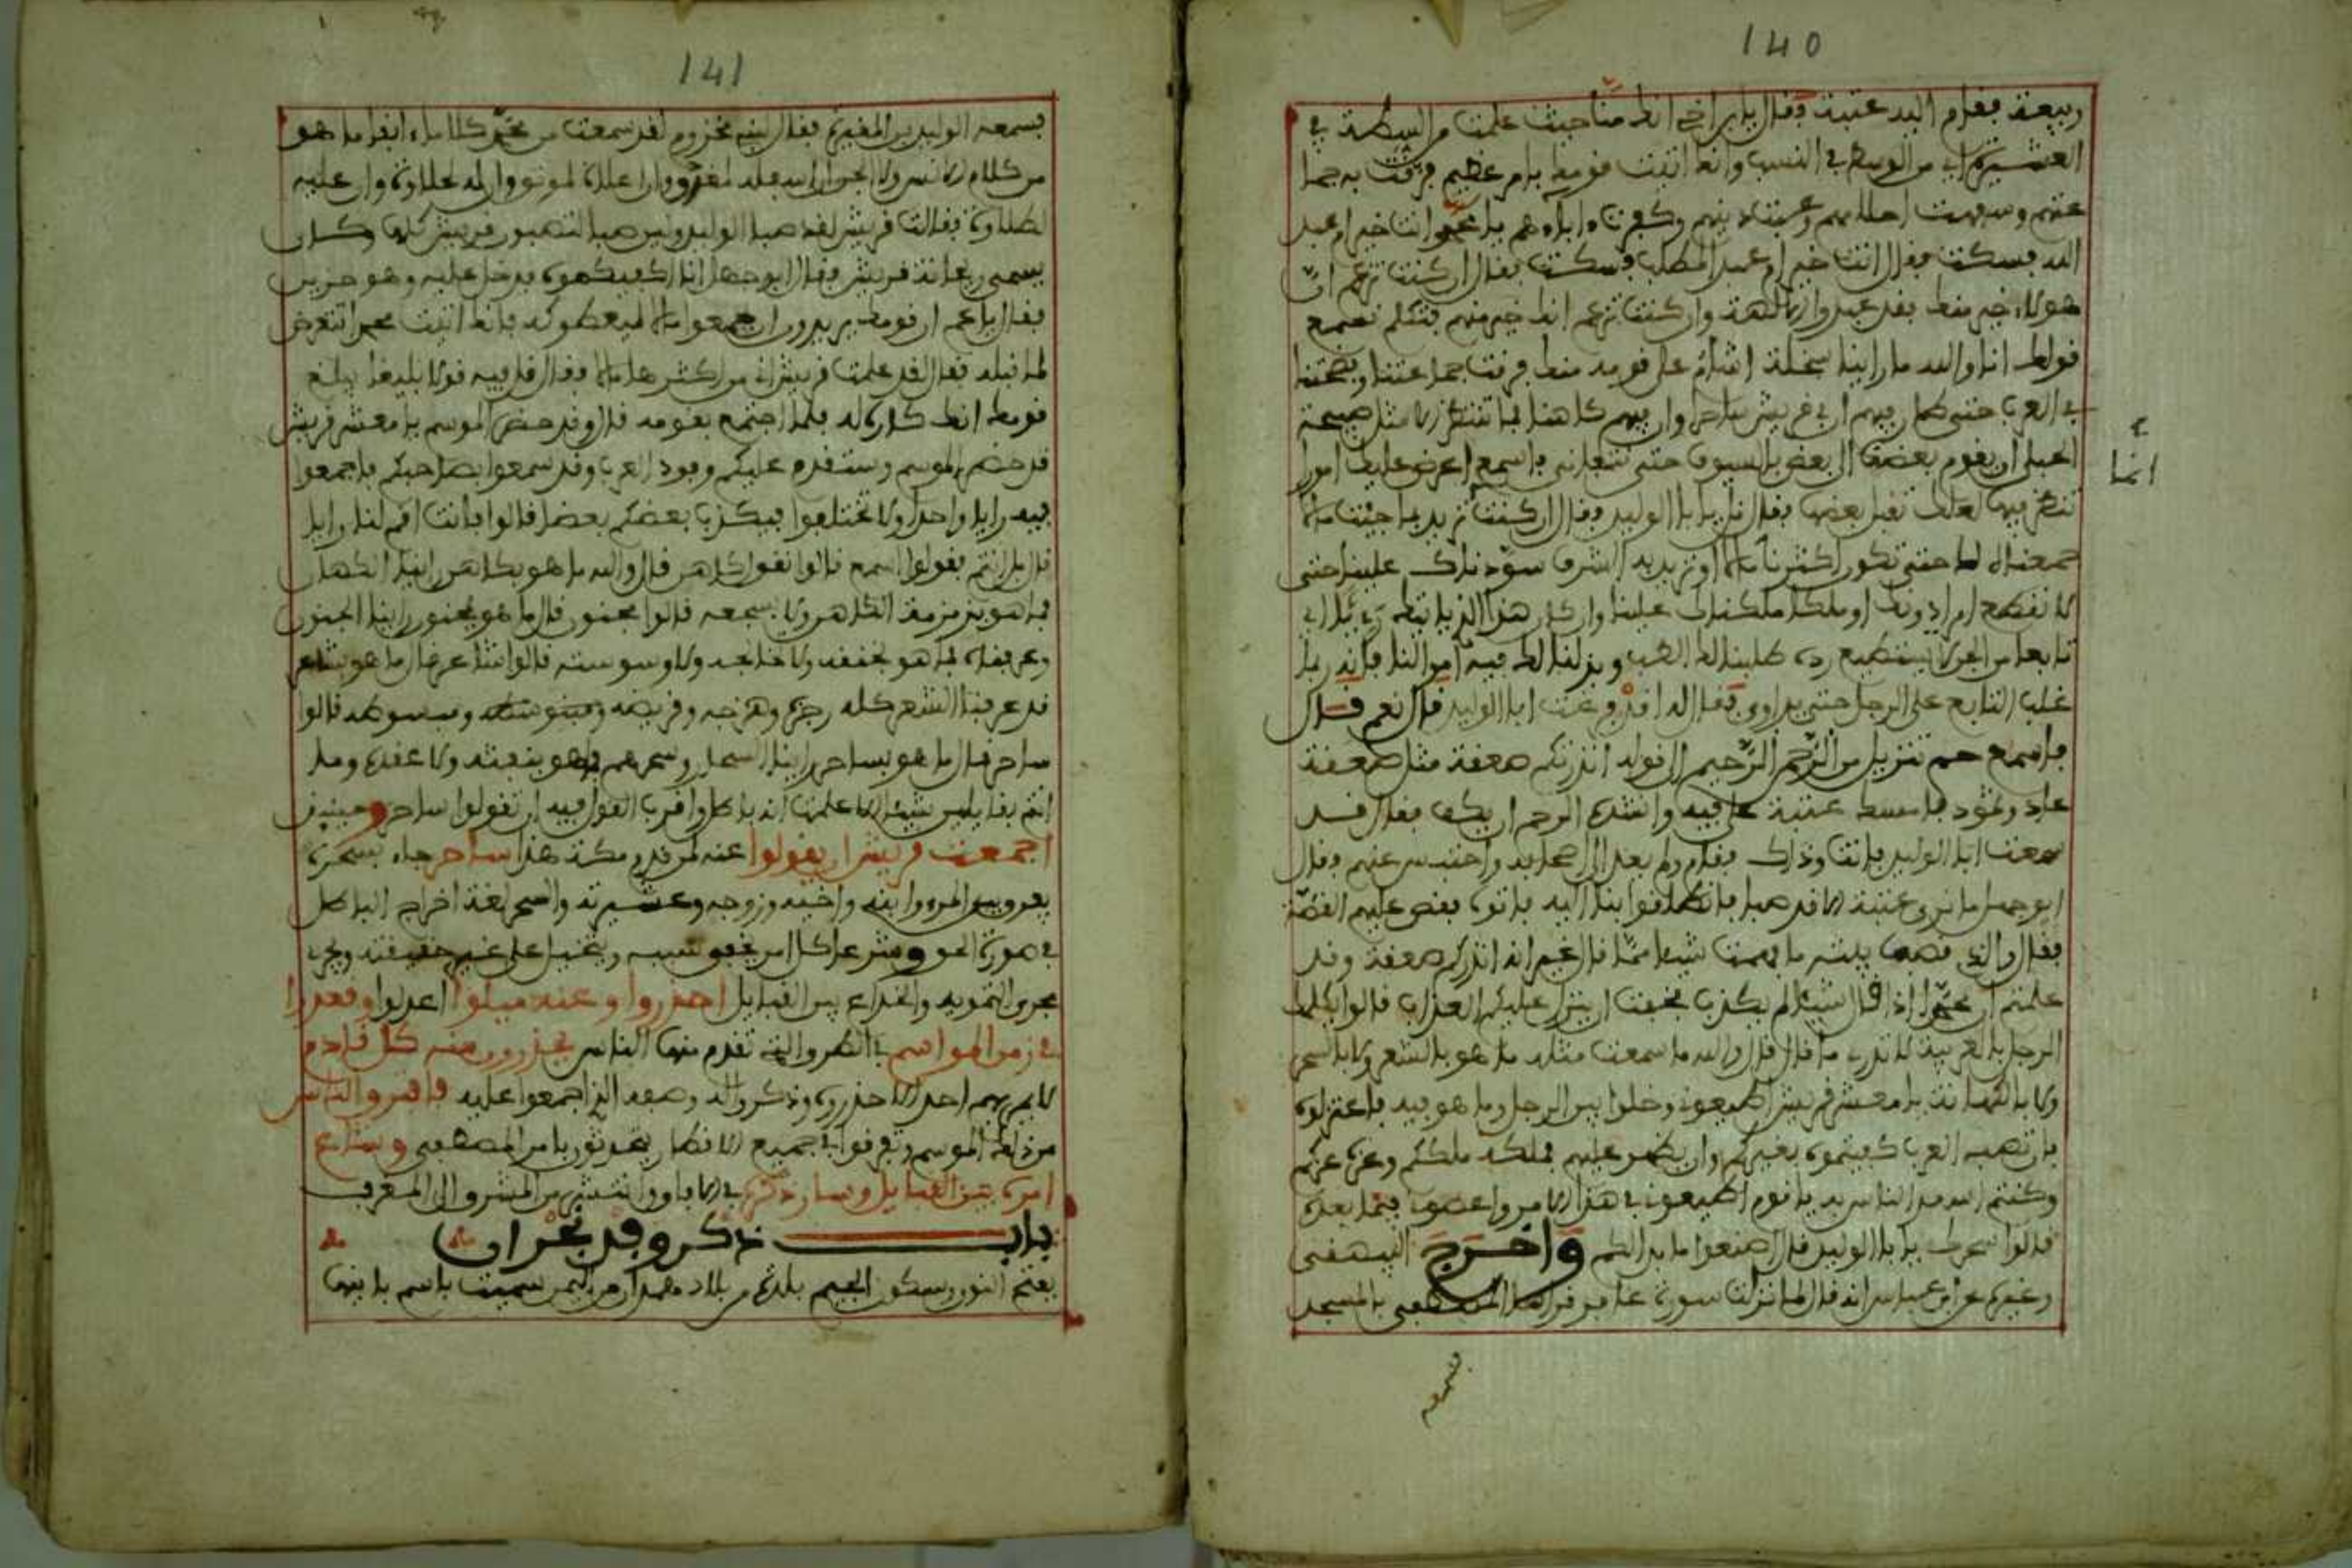 140
ربيعة فقام اليه عتبة وقال يا بن اخي انك منا حيث علمت من السطة في
العشيرة اي من الوسط في النسب وانك اتيت قومك بامر عظيم فرقت به جما
عتهم وسبهت احلامهم وعبت دينهم وكفرت ءاباءهم يا محمد انت خير ام عبد
الله فسكت فقال انت خير ام عبد المطلب فسكت فقال ان كنت تزعم ان
هولاء خير منك فقد عبدوا الالهة وان كنت تزعم انك خير منهم فتكلم نسمع
قولك انا والله ما راينا سخلة اشأم على قومه منك فرقت جماعتنا وفضحتنا
في العرب حتى طار فيهم ان في قريش ساحرا وان فيهم كاهنا فما ننتظر الا مثل صيحة
الحبلى ان يقوم بعضنا الى بعض بالسيوف حتى نتفانى فاسمع اعرض عليك امورا
انما
تنظر فيها لعلك تقبل بعضها فقال قل يا ابا الوليد فقال ان كنت تريد بما جيت مالا
جمعنا لك حتى تكون اكثرنا مالا او تريد به الشرف سودناك علينا حتى
لا نقطع امرا دونك او ملكا ملكناك علينا وان كان هذا الذي ياتيك رءيا اي
تابعا من الجن لا يستطيع رده طلبنا لك الطب وبذلنا لك فيه اموالنا فانه ربما
غلب التابع على الرجل حتى يداوى فقال له افد فرغت ابا الوليد قال نعم قال
فاسمع حم تنزيل من الرحمن الرحيم الى قوله انذرتكم صعقة مثل صعقة
عاد وثمود فامسك عتبة على فيه وانشده الرحم ان يكف فقال قد
سمعت ابا الوليد فانت وذاك فقام ولم يعد الى اصحابه واحتبس عنهم فقال
ابو جهل ما نرى عتبة الا قد صبا فانطلقوا بنا اليه فاتوه فقص عليهم القصة
فقال والذي نصبها بنية ما فهمت شيئا مما قال غير انه انذركم صعقة وقد
علمتم ان محمدا اذا قال شيئا لم يكذب فخفت ان ينزل عليكم العذاب قالوا يكلمك
الرجل بالعربية لا تدري ما قال قال والله ما سمعت مثله ما هو بالشعر ولا بالسحر
ولا بالكهانة يا معشر قريش اطيعوني وخلوا بين الرجل وما هو فيه فاعتزلوه
فان تصبه العرب كفيتموه بغيركم وان يظهر عليهم فملكه ملككم وعزه عزكم
وكنتم اسعد الناس به يا قوم اطيعوني في هذا الامر واعصوني فيما بعده
قالوا سحرك يا ابا الوليد قال اصنعوا ما بدا لكم واخرج البيهقي
وغيره عن ابن عباس انه قال لما نزلت سورة غافر قراها المصطفى بالمسجد
فسمعه
141
فسمعه الوليد بن المغيرة فقال لبني مخزوم لقد سمعت من محمد كلاما ءانفا ما هو
من كلام الانس ولا الجن ان اسفله لمغدق وان اعلاه لمونق وان له لحلاوة وان عليه
لطلاوة فقالت قريش لقد صبا الوليد وليس صبا لتصبون قريش كلها وكان
يسمى ريحانة قريش فقال ابو جهل انا اكفيكموه فدخل عليه وهو حزين
فقال يا عم ان قومك يريدون ان يجمعوا مالا ليعطوكه فانك اتيت محمدا تتعرض
لما قبله فقال لقد علمت قريش اني من اكثرها مالا فقال قل فيه قولا بليغا يبلغ
قومك انك كاره له فلما اجتمع بقومه قال وقد حضر الموسم يا معشر قريش
قد حضر الموسم وستقدم عليكم وفود العرب وقد سمعوا بصاحبكم فاجمعوا
فيه رايا واحدا ولا تختلفوا فيكذب بعضكم بعضا قالوا فانت اقم لنا رايا
قال بل انتم فقولوا اسمع قالوا نقول كاهن قال والله ما هو بكاهن راينا الكهان
فما هو بزمزمة الكاهن ولا بسجعه قالوا مجنون قال ما هو بمجنون راينا الجنون
وعرفناه فما هو بخنقه ولا تخالجه ولا وسوسته قالوا شاعر قال ما هو بشاعر
قد عرفنا الشعر كله رجزه وهزجه وقريضه ومقبوضه ومبسوطه قالوا
ساحر قال ما هو بساحر راينا السحار وسحرهم فما هو بنفثه ولا عقده وما
انتم بقايلين شيئا الا علمت انه باطل واقرب القول فيه ان تقولوا ساحر وحينئذ
اجمعت قريش ان يقولوا عنه لمن قدم مكة هذا ساحر جاء بسحره
يفرق بين المرء وابنه واخيه وزوجه وعشيرته والسحر لغة اخراج الباطل
في صورة الحق وشرعا كل امر يخفى سببه ويتخيل على غير حقيقته ويجري
مجرى التمويه والخداع بين القبايل احذروا وعنه ميلوا اعدلوا وقعدوا
في زمن المواسم في الطرق التي تقدم منها الناس يحذرون منه كل قادم
لا يمر بهم احد الا حذروه وذكروا له وصفه الذي اجمعوا عليه فافترق الناس
من ذلك الموسم وتفرقوا في جميع الاقطار يتحدثون بامر المصطفى وشاع
امره بين القبايل وسار ذكره في الافاق وانتشر من المشرق الى المغرب
باب ذكر وفد نجران
بفتح النون وسكون الجيم بلدة من بلاد همدان من اليمن سميت باسم بانيها